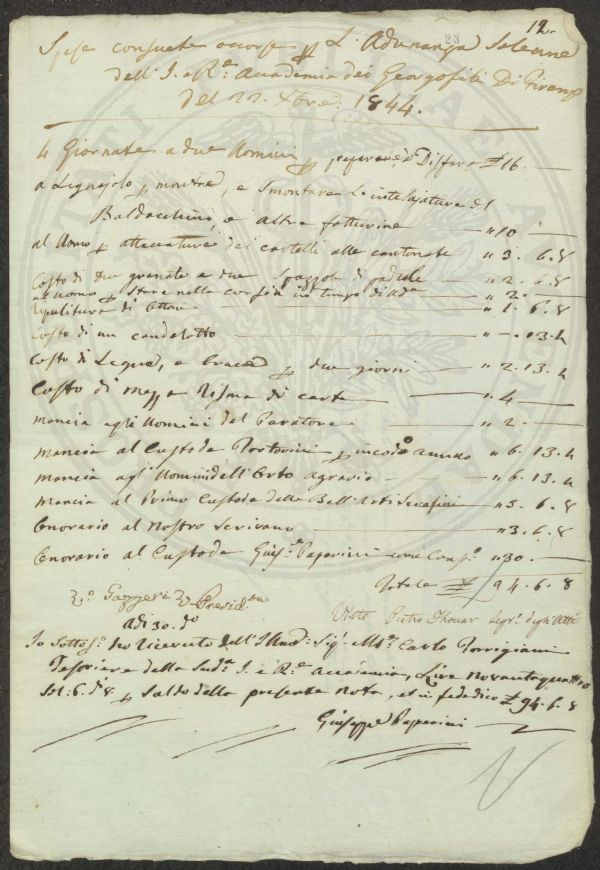 12.
23
Spese consuete occorse p L'Adunanza Solenne
dell' I. e R.e Accademia dei Georgofili Di Firenze
del 22. Xbre. 1844.
4 Giornate a due Uomini p preparare, e Disfare £ 16. —
a Legnajolo p montare, e Smontare L'intelajature del
Baldacchino, e altre fatturine — " 10 —
al Uomo p attaccature dei cartelli alle cantonate " 3. 6. 8
Costo di due granate e due Spazzole di padule " 2. 6. 8
al Uomo p stare nella corsia in tempo di Ad.a " 2. —
Ripulitura di Ottoni — " 1. 6. 8
Costo di un candelotto — " —. 13. 4
Costo di Legna, e brace p due giorni — " 2. 13. 4
Costo di mezza Risma di carta — " 4 —
Mancia agli Uomini del Paratore — " 2 —
Mancia al Custode Portorini p annuo " 6. 13. 4
Mancia agli Uomini dell'Orto agrario — " 6. 13. 4
Mancia al Primo Custode delle Bell'Arti Serafini " 3. 6. 8
Onorario al Nostro Scrivano — " 3. 6. 8
Onorario al Custode Gius.e Paperini " 30. —
Totale £ 94. 6. 8
V.o Gazzeri V. Presid.te
Visto Pietro Thouar Segr.o degli Atti
Adi 30. d.o
Io Sottos.o ho Ricevuto dell' Illmo: Sig.e M.se Carlo Torrigiani
Tesoriere della Sud.a I. e R.e Accademia, Lire Novantaquattro
Sol: 6. d 8 p Saldo della presente Nota, ed in fede dico £ 94. 6. 8
Giuseppe Paperini